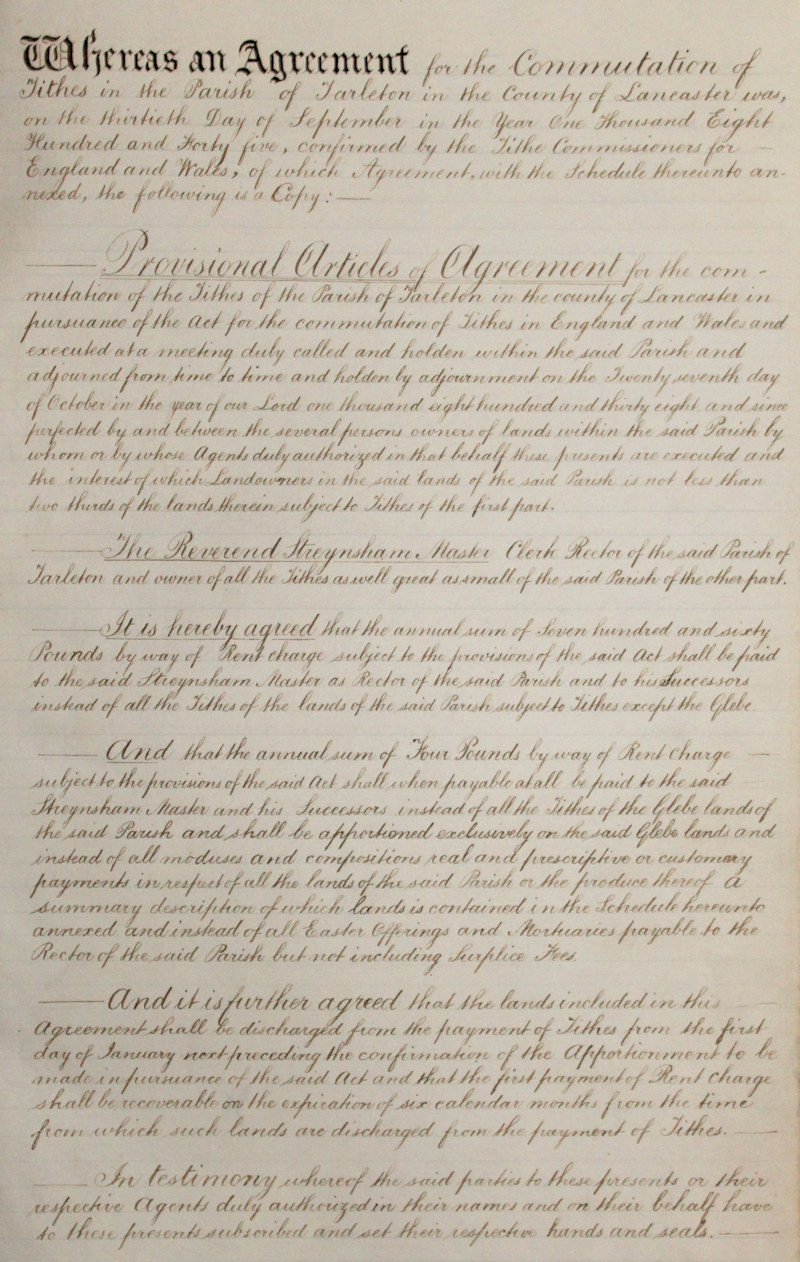 Whereas an Agreement for the Commutation of
Tithes in the Parish of Tarleton in the County of Lancaster was,
on the thirtieth Day of September in the Year One Thousand Eight
Hundred and Forty five, confirmed by the Tithe Commissioners for
England and Wales, of which Agreement, with the Schedule thereunto an-
nexed, the following is a Copy:
Provisional Articles of Agreement for the com-
mutation of the Tithes of the Parish of Tarleton in the county of Lancaster in
pursuance of the Act for the commutation of Tithes in England and Wales and
executed at a meeting duly called and holden within the said Parish and
adjourned from time to time and holden by adjournment on the Twenty seventh day
of October in the year of our Lord one thousand eight hundred and thirty eight and since
perfected by and between the several persons owners of lands within the said Parish by
whom or by whose Agents duly authorized in that behalf these presents are executed and
the interest of which Landowners in the said lands of the said Parish is not less than
two thirds of the lands therein subject to Tithes of the first part.
The Reverend Streynsham Master Clerk Rector of the said Parish of
Tarleton and owner of all the Tithes as well great as small of the said Parish of the other part.
It is hereby agreed that the annual sum of Seven hundred and sixty
Pounds by way of Rent charge subject to the provisions of the said Act shall be paid
to the said Streynsham Master as Rector of the said Parish and to his Successors
instead of all the Tithes of the lands of the said Parish subject to Tithes except the Glebe
And that the annual sum of Four Pounds by way of Rent Charge
subject to the provisions of the said Act shall when payable at all be paid to the said
Streynsham Master and his Successors instead of all the Tithes of the Glebe lands of
the said Parish and shall be apportioned exclusively on the said Glebe lands and
instead of all moduses and compositions real and prescriptive or customary
payments in respect of all the lands of the said Parish or the produce thereof A
summary description of which lands is contained in the Schedule hereunto
annexed and instead of all Easter Offerings and Mortuaries payable to the
Rector of the said Parish but not including Surplice Fees.
And it is further agreed that the lands included in this
Agreement shall be discharged from the payment of Tithes from the first
day of January next preceding the confirmation of the Apportionment to be
made in pursuance of the said Act and that the first payment of Rent Charge
shall be recoverable on the expiration of six calendar months from the time
from which such lands are discharged from the payment of Tithes.
In testimony whereof the said parties to these presents or their
respective Agents duly authorized in their names and on their behalf have
to these presents subscribed and set their respective hands and seals.